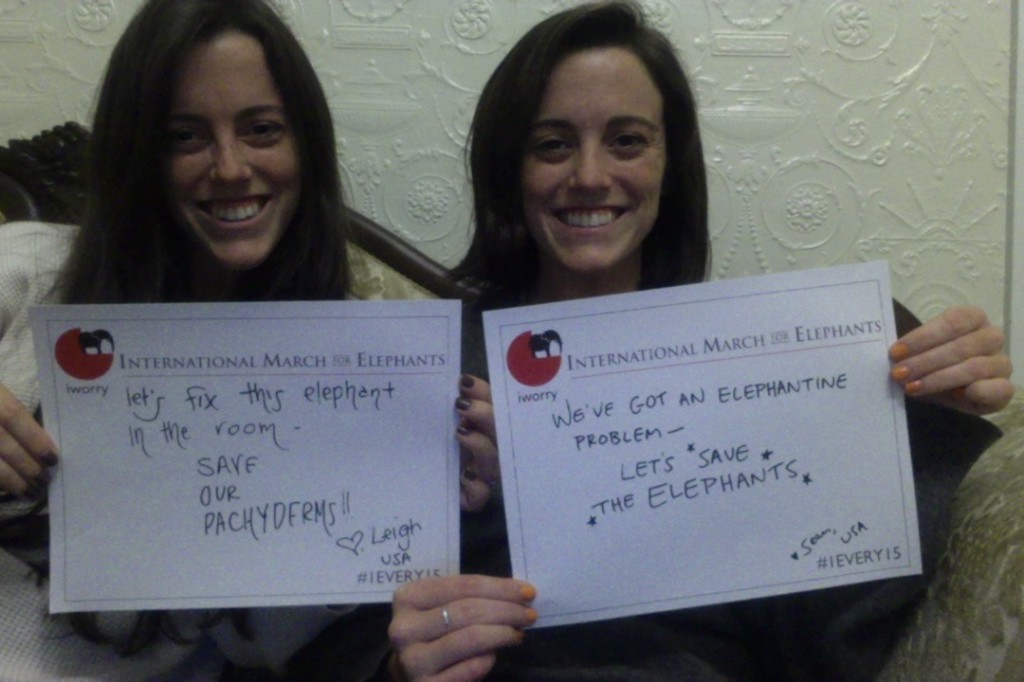 INTERNATIONAL MARCH FOR ELEPHANTS
iworry
let's fix this elephant
in the room -
SAVE
OUR
PACHYDERMS!!
♡, Leigh
USA
#IEVERY15
INTERNATIONAL MARCH FOR ELEPHANTS
iworry
WE'VE GOT AN ELEPHANTINE
PROBLEM—
LET'S *SAVE *
*THE ELEPHANTS*
USA
#IEVERY15